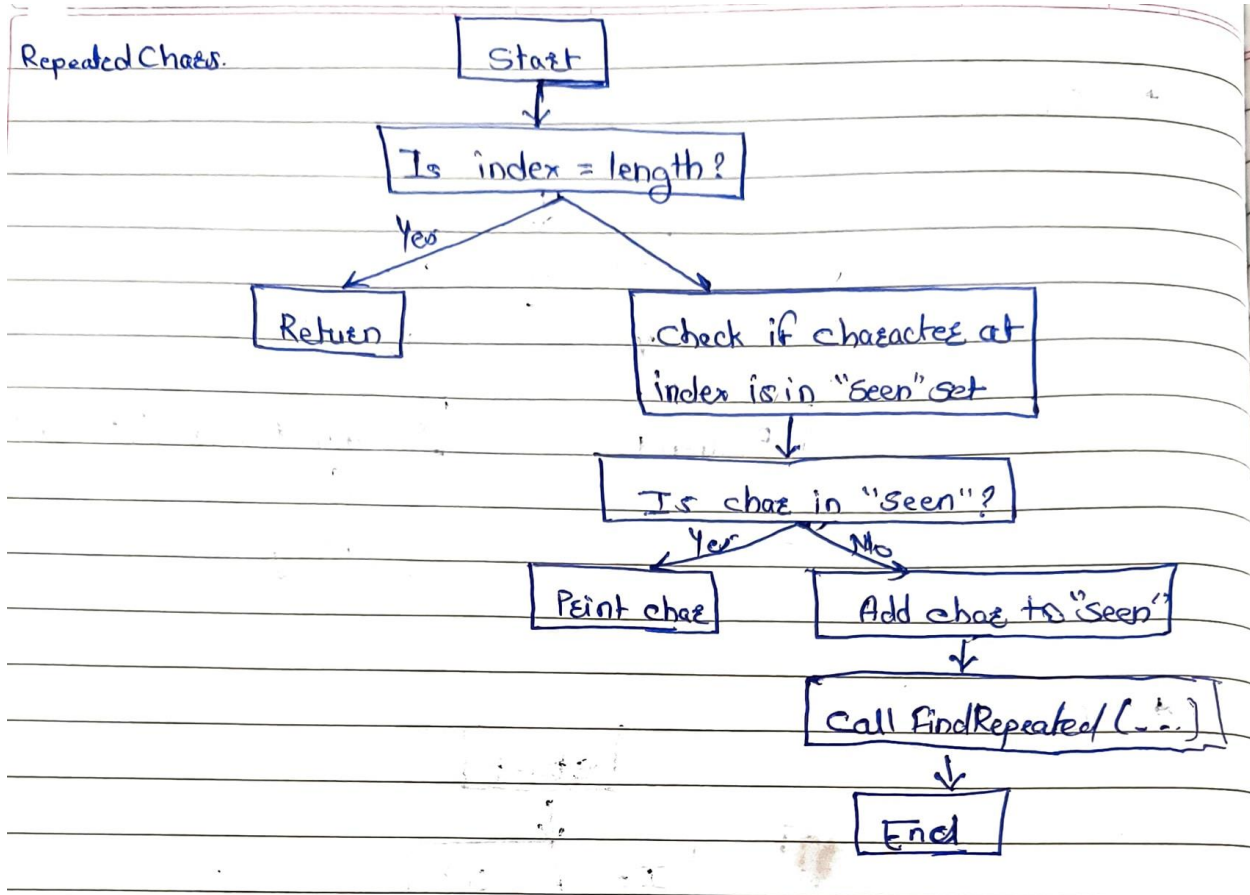 Repeated Chars.
Start
Is index = length?
Yes
Return
Check if character at
index is in "Seen" set
Is char in "Seen"?
Yes
No
Print char
Add char to "Seen"
Call FindRepeated (...)
End